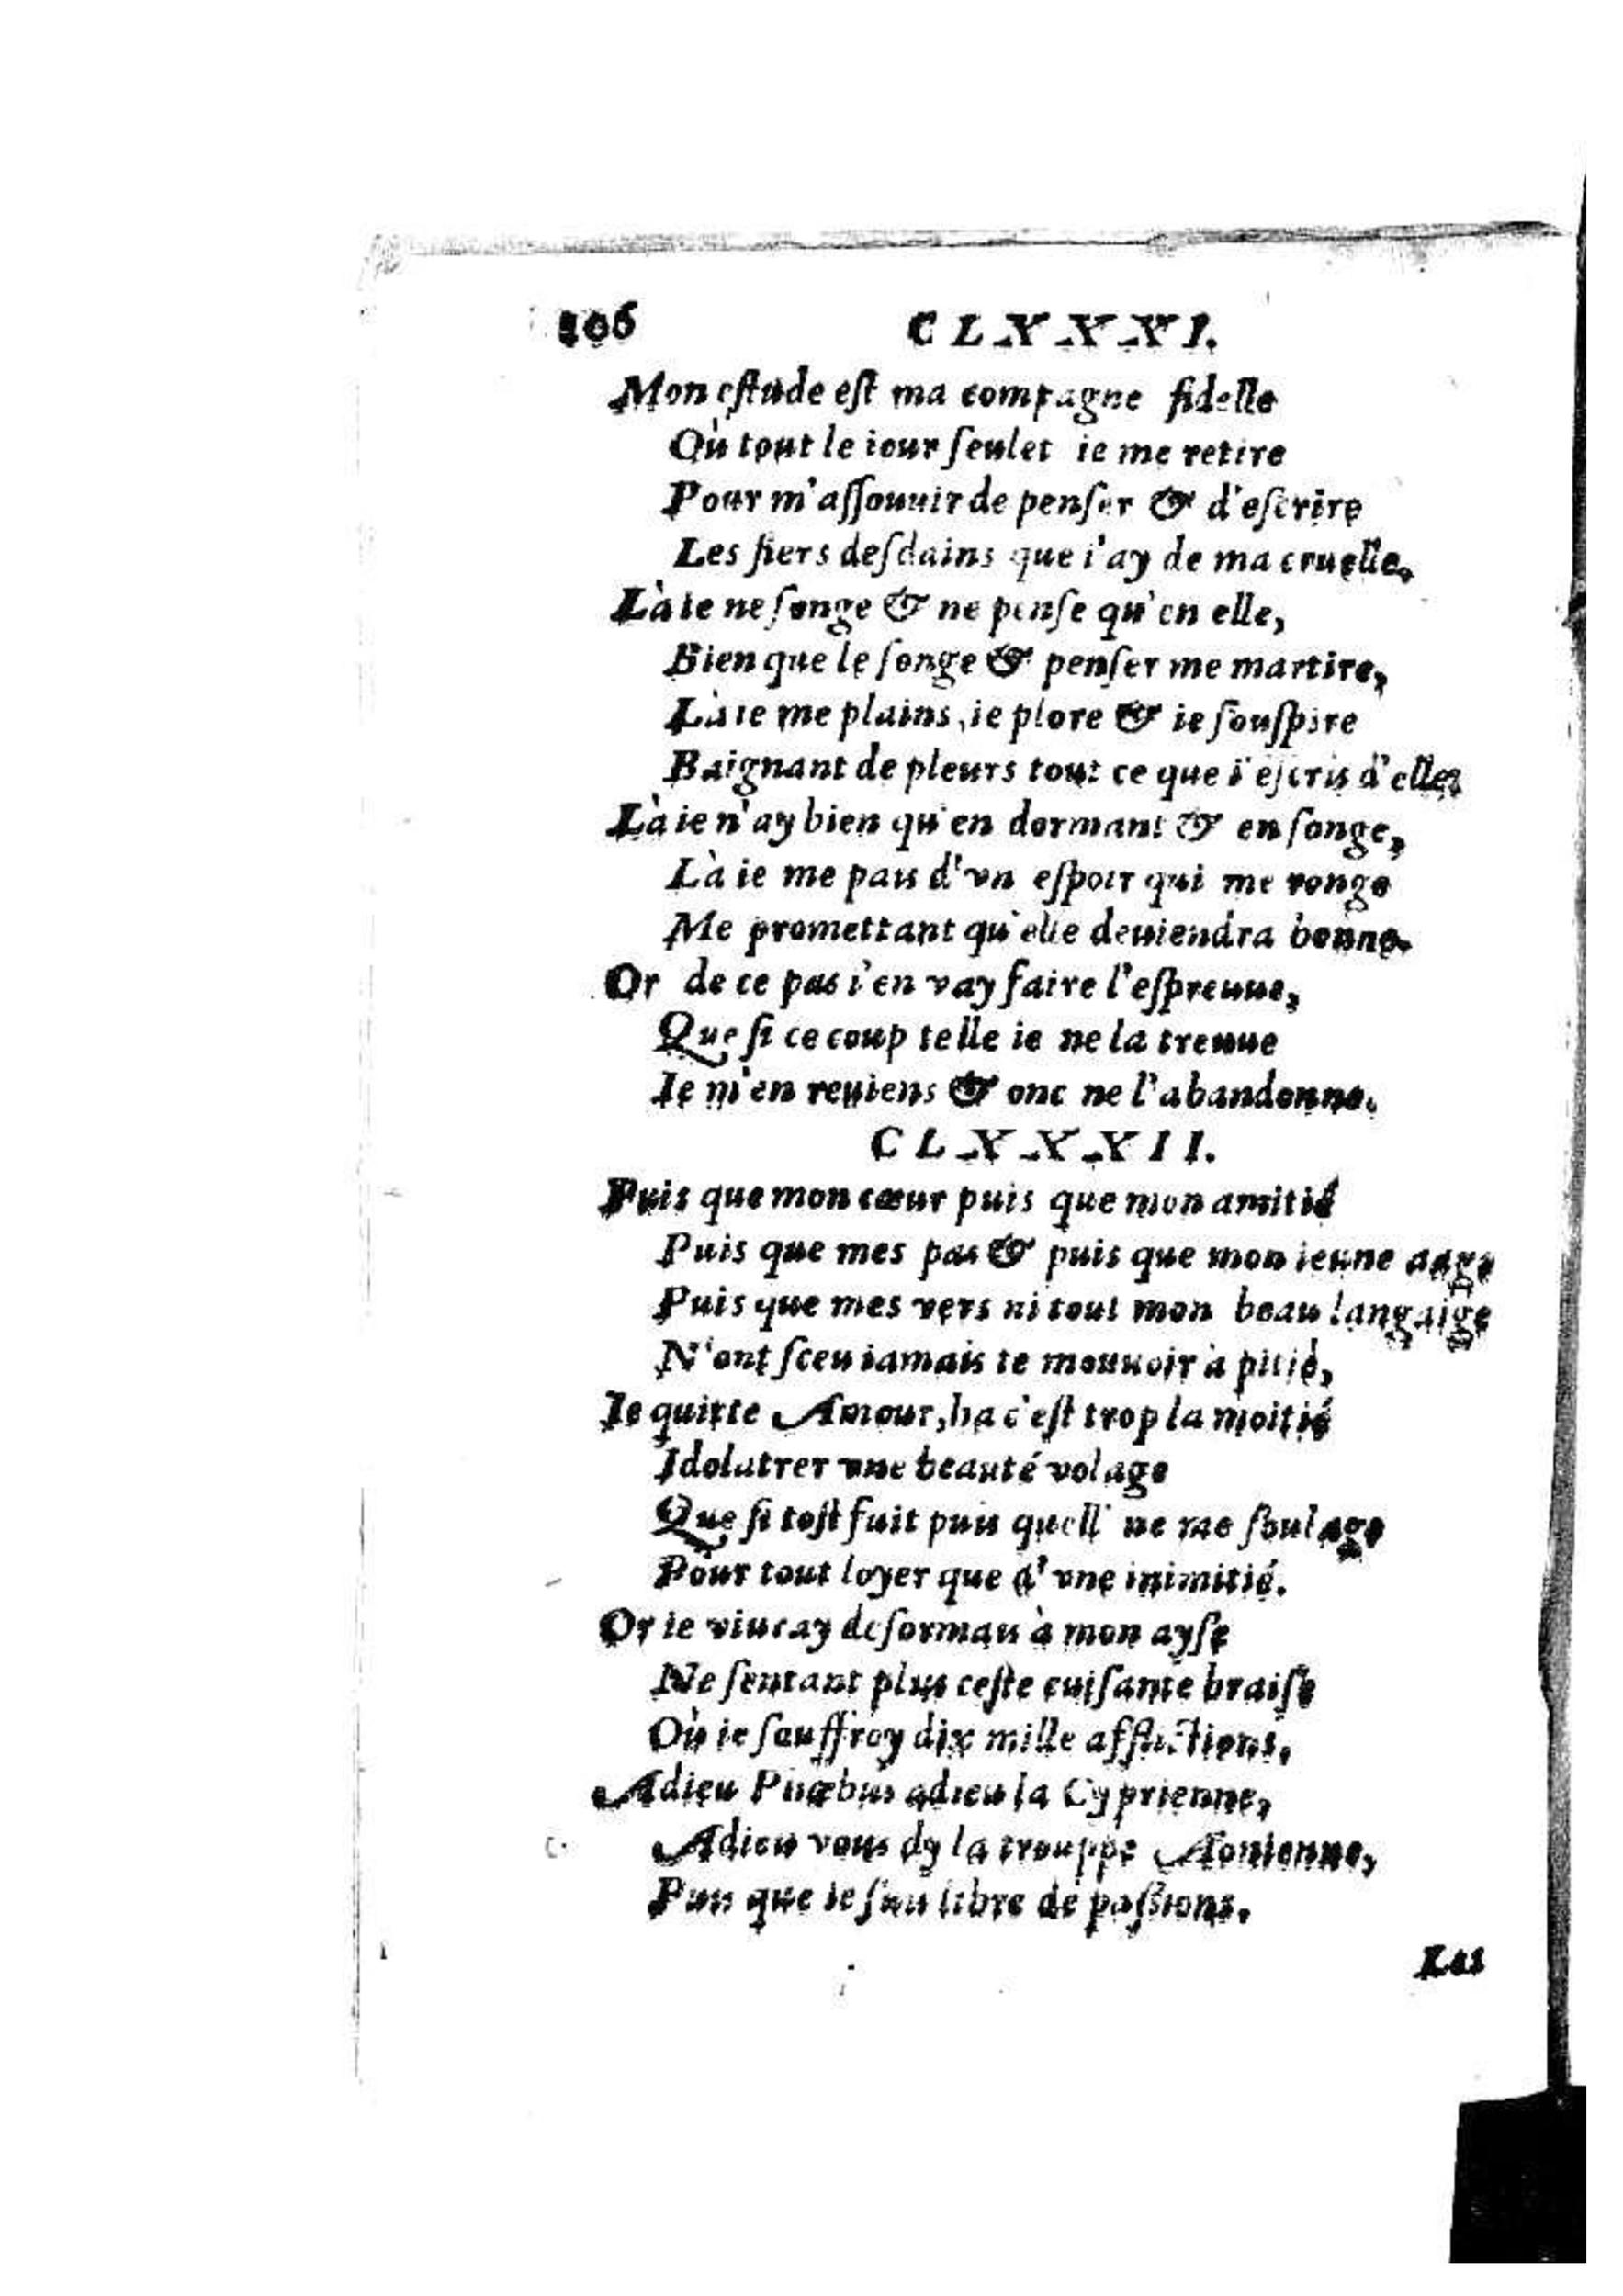 106 CLXXXI.
Mon estude est ma compagne fidelle
Où tout le iour seulet ie me retire
Pour m'assouuir de penser & d'escrire
Les fiers desdains que i'ay de ma cruelle.
Là ie ne songe & ne pense qu'en elle,
Bien que le songe & penser me martire,
Là ie me plains, ie plore & ie souspire
Baignant de pleurs tout ce que i'escris d'elle,
Là ie n'ay bien qu'en dormant & en songe,
Là ie me pais d'vn espoir qui me ronge
Me promettant qu'elle deuiendra bonne.
Or de ce pas i'en vay faire l'espreuue,
Que si ce coup telle ie ne la treuue
Ie m'en reuiens & onc ne l'abandonne.
CLXXXII.
Puis que mon cœur puis que mon amitié
Puis que mes pas & puis que mon ieune aage
Puis que mes vers ni tout mon beau langaige
N'ont sceu iamais te mouuoir à pitié,
Ie quitte Amour, ha c'est trop la moitié
Idolatrer vne beauté volage
Que si tost fuit puis quell' ne me soulage
Pour tout loyer que d'vne inimitié.
Or ie viuray desormais à mon ayse
Ne sentant plus ceste cuisante braise
Où ie souffroy dix mille afflictions,
Adieu Phœbus adieu la Cyprienne,
Adieu vous dy la trouppe Aonienne,
Puis que ie suis libre de passions.
Las